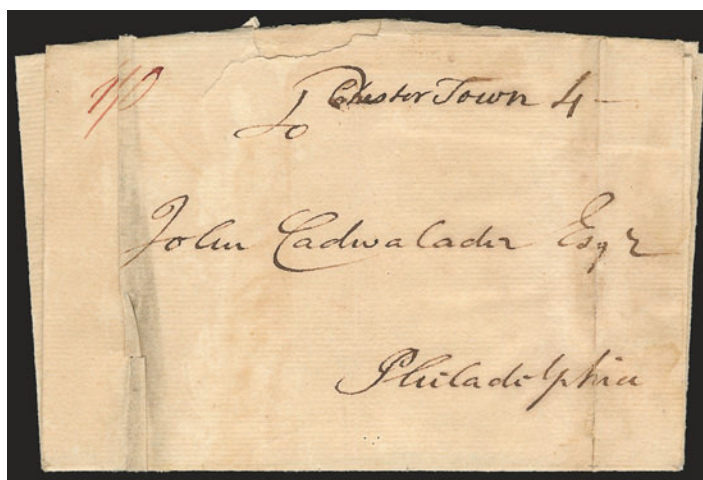 Chester Town 4 -
To
John Cadwalader Esqr
Philadelphia